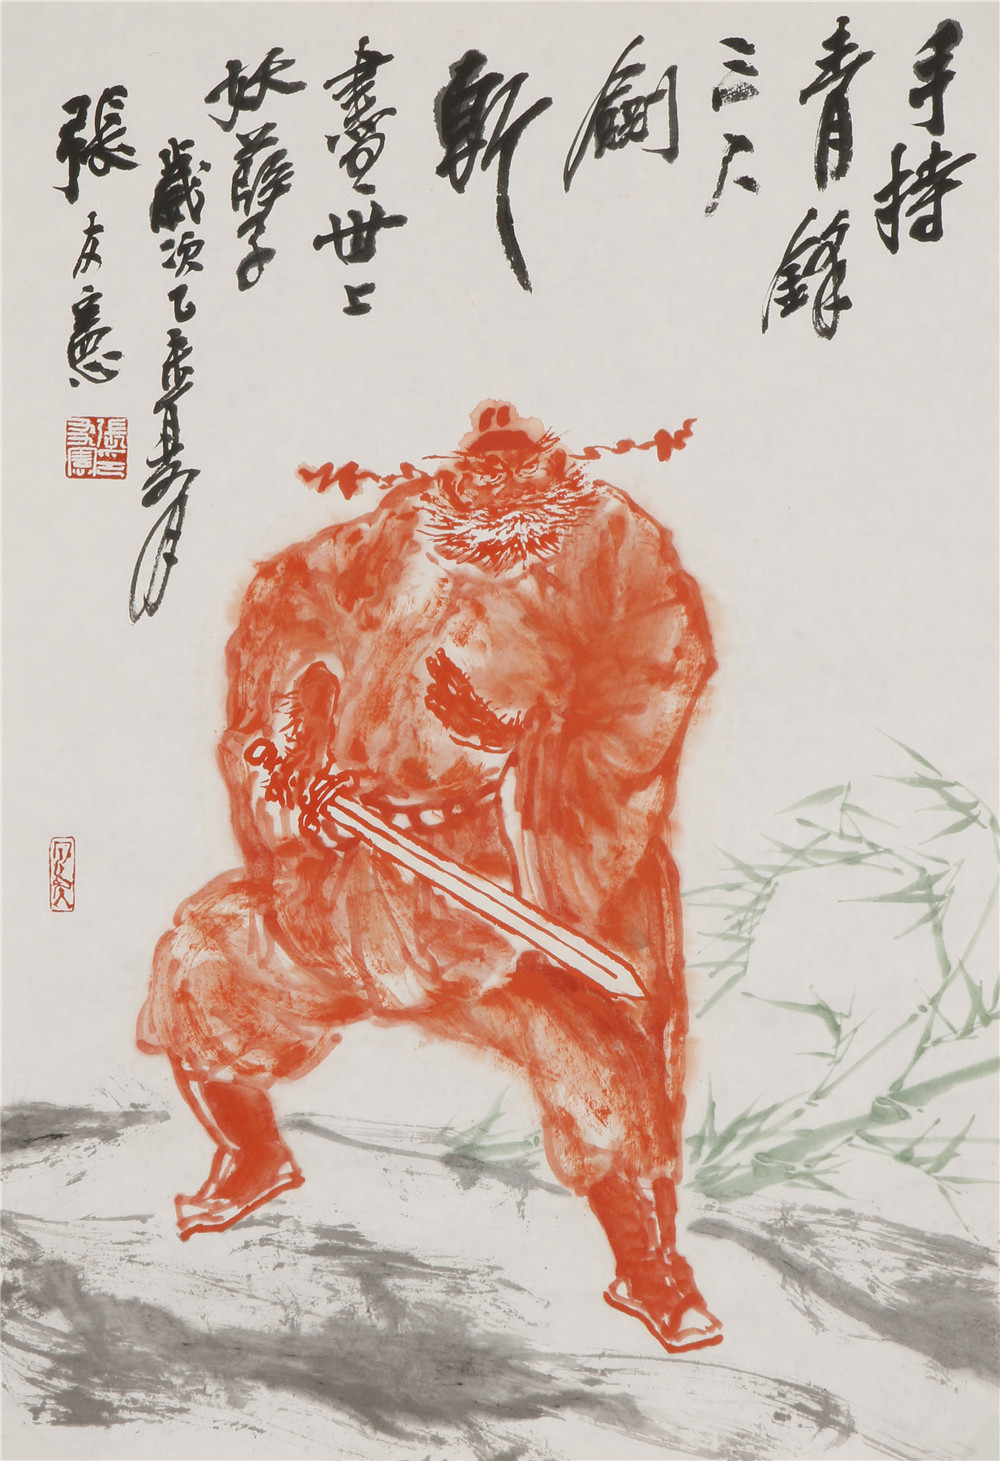 手持
青鋒
三尺
劍
斬
盡世上
妖孽
歲次乙亥夏月
張友憲
張友憲印